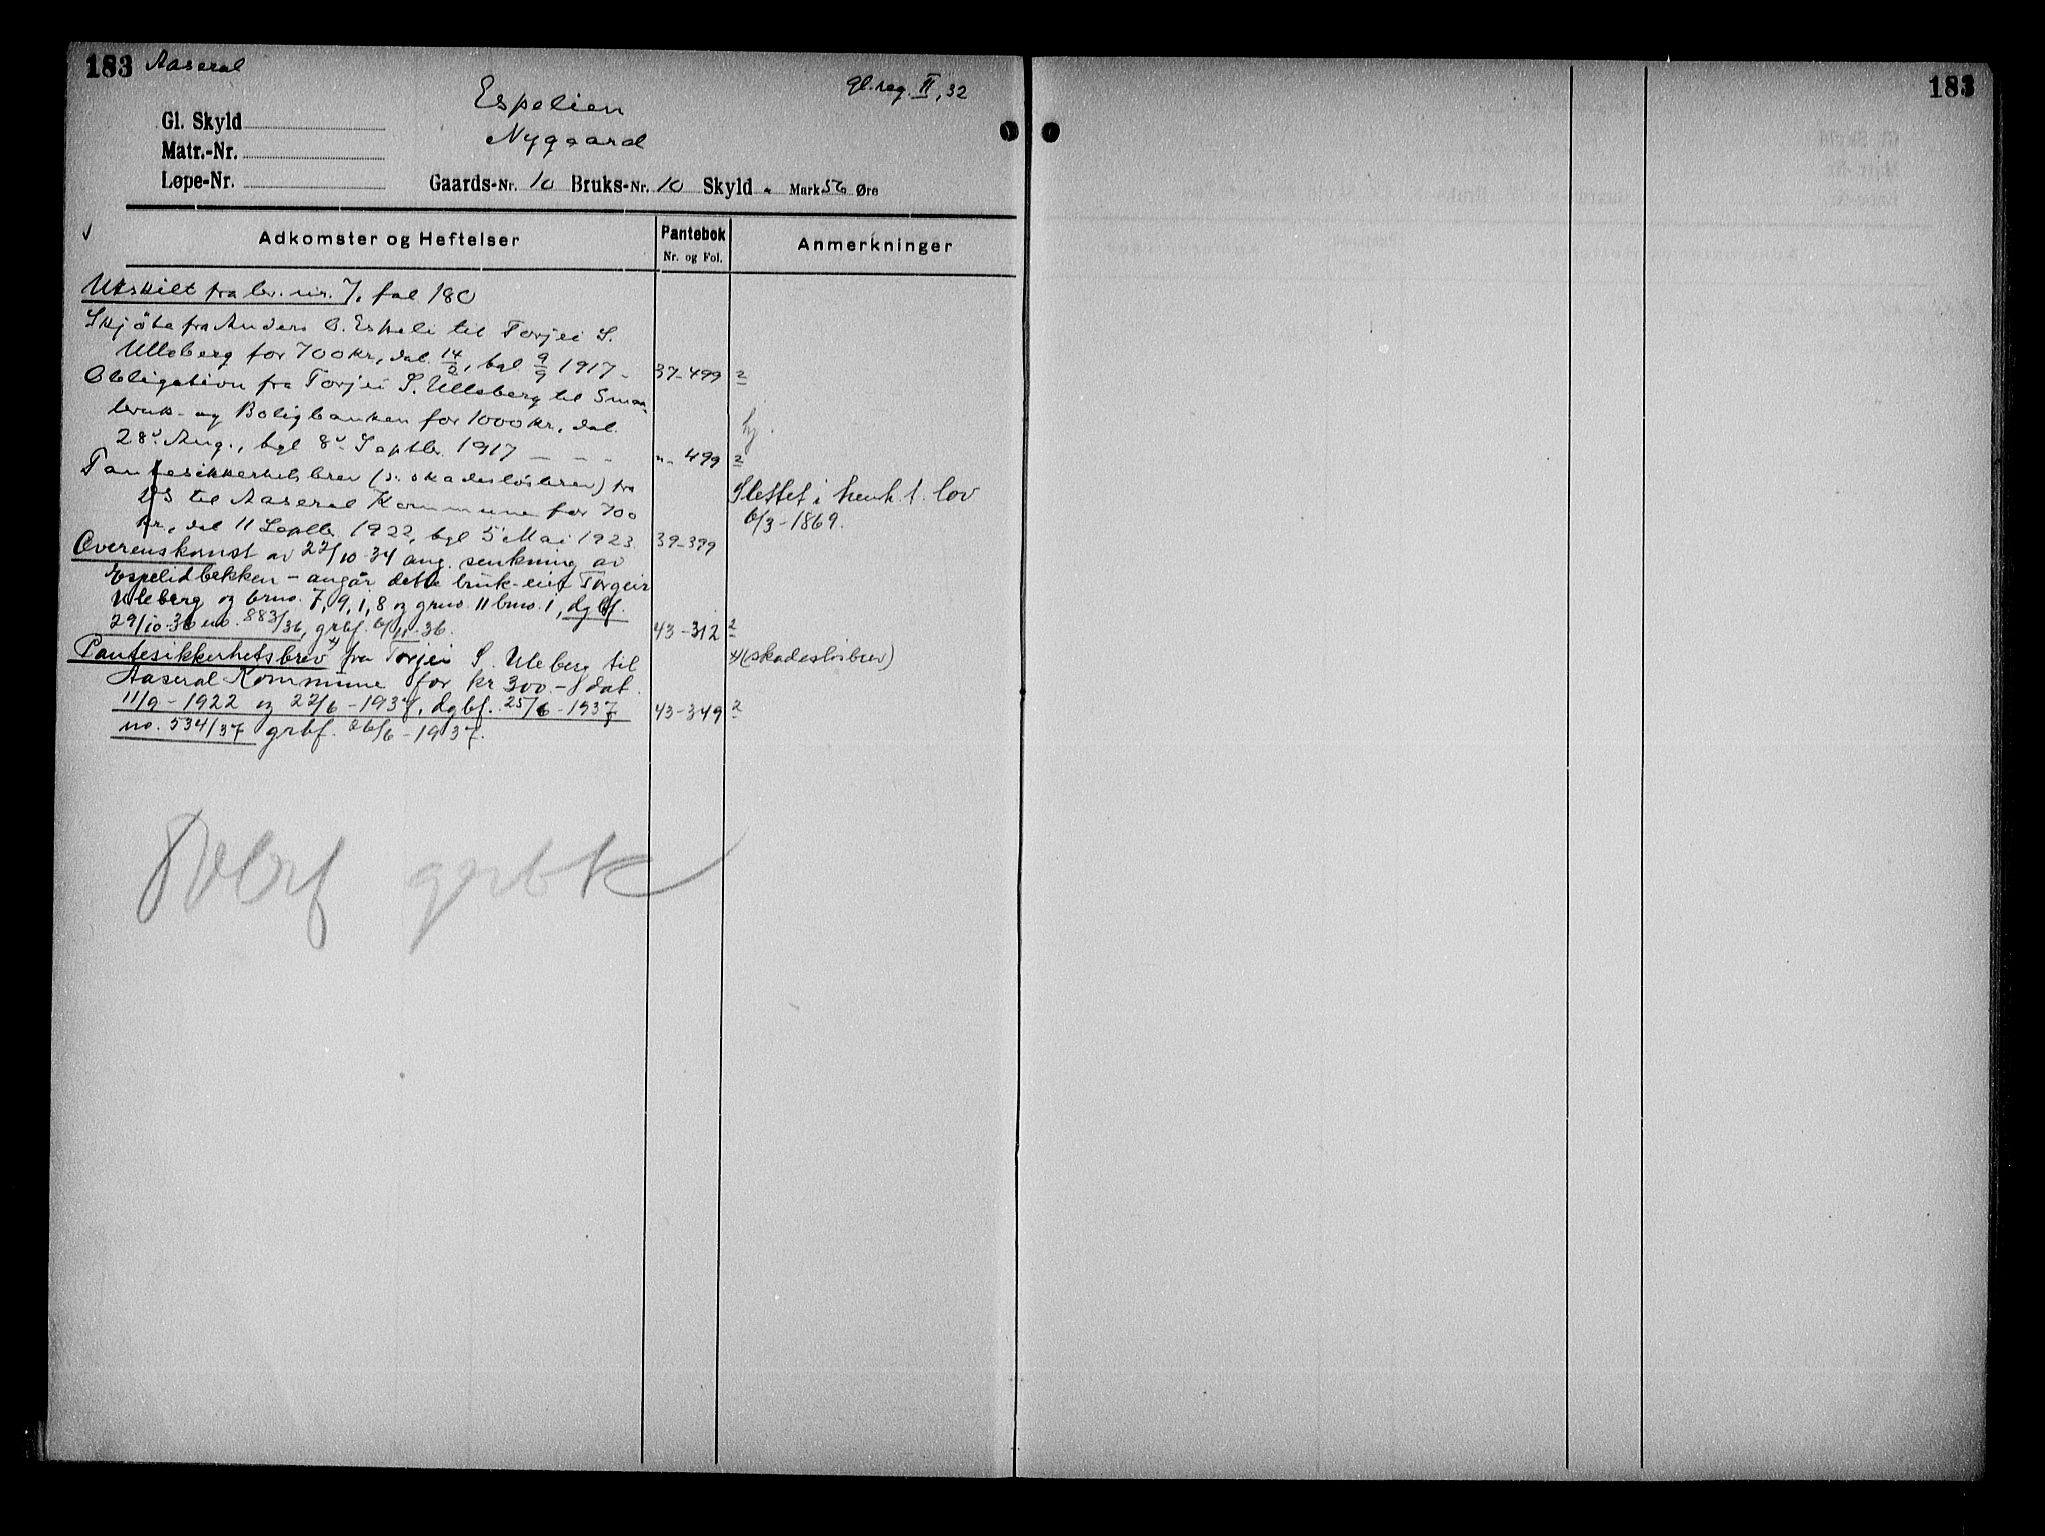 183 Aaseral
gl. reg. II, 32
Espelien
Nygaard
Gl. Skyld
Matr.-Nr.
Løpe-Nr.
Gaards-Nr. 10 Bruks-Nr. 10 Skyld " Mark 56 Øre
Adkomster og Heftelser
Pantebok
Nr. og Fol.
Anmerkninger
Utskilt fra br. nr. 7, fol 180
Skjøte fra Anders O. Espeli til Torjei S.
Ulleberg for 700 kr, dat. 14/2, bgl 9/9 1917 - 37-499 2
Obligation fra Torjei S. Ulleberg til Smaa-
bruk- og Boligbanken for 1000 kr, dat.
28. Aug., bgl 8. Septbr. 1917 - - - "- 499 2
Pantesikkerhetsbrev (s. skadesløsbrev) fra
ds til Aaseral Kommune for 700
kr, dat 11 Septbr 1922, bgl 5 Mai 1923. 39-399
Slettet i henh. t. lov
6/3-1869.
Overenskomst av 22/10-34 ang. senkning av
Espelidbekken - angår dette bruk-eier Torgeir
Uleberg og brno. 7, 9, 1, 8 og grno. 11 brno. 1, dgbf.
29/10-36 no. 883/36, grbf. 6/11-36. 43-312 2
Pantesikkerhetsbrev x) fra Torjei S. Uleberg til
x) (skadesløsbrev)
Aaseral Kommune for kr 300.- dat.
11/9-1922 og 22/6-1937, dgbf. 25/6-1937 43-349 2
no. 534/37 grbf. 26/6-1937.
grbk
183